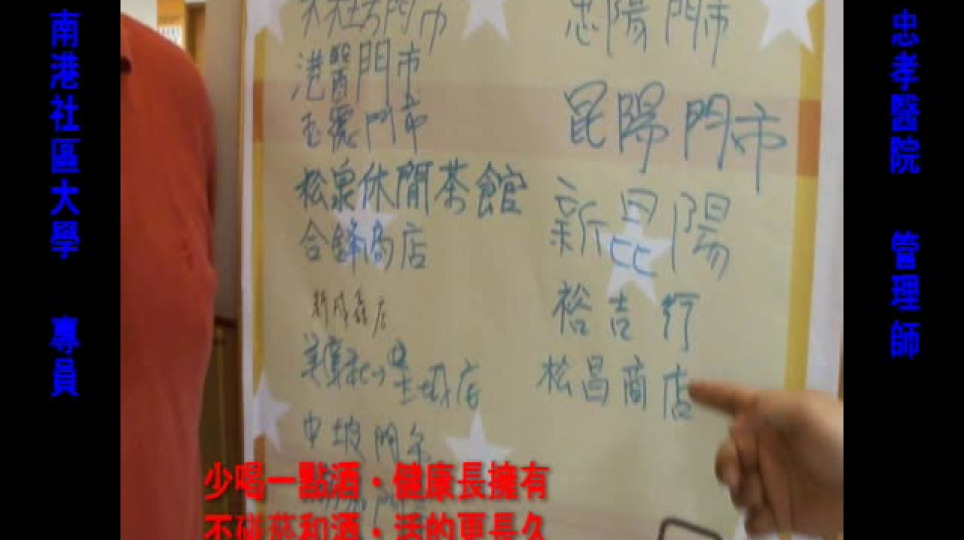 南港社區大學 專員
港醫門市
玉麗門市
松泉休閒茶館
合鋒商店
新成鑫店
中坡門市
忠陽門市
昆陽門市
新昆陽
裕吉行
松昌商店
忠孝醫院 管理師
少喝一點酒，健康長擁有
不碰菸和酒，活的更長久